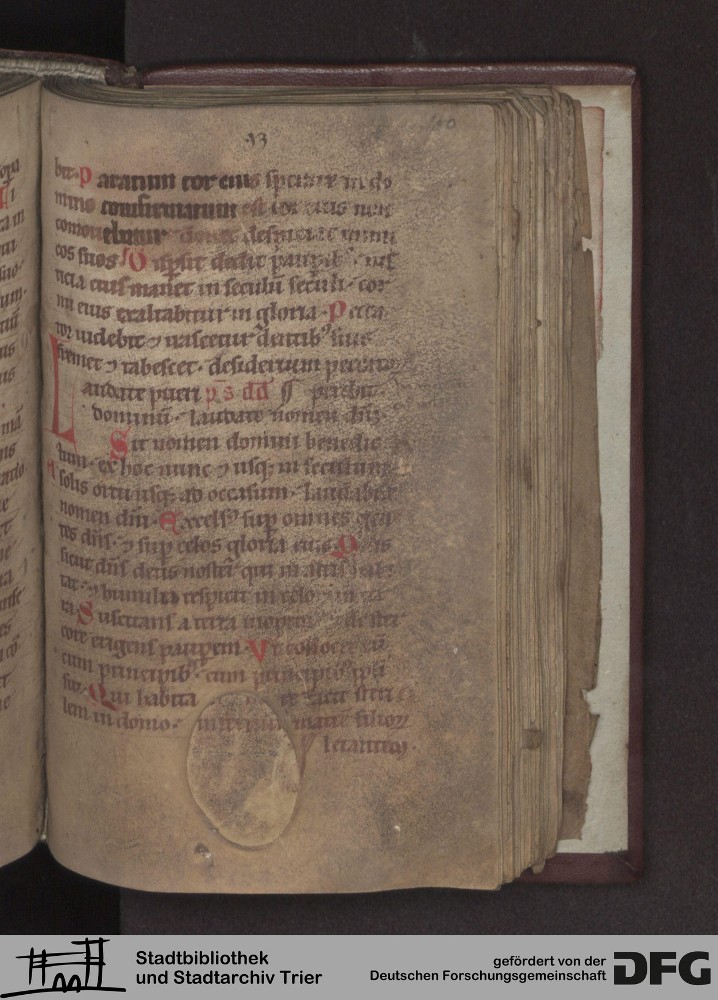 93
100
bit· Paratum cor eius sperare in do
mino confirmatum est cor eius non
comouebitur donec despiciat inimi
cos suos Dispsit dedit paupib
ticia eius manet in seculū seculi· cor
nu eius exaltabitur in gloria· Pecca
tor uidebit ⁊ irascetur dentibꝰ suis
fremet ⁊ tabescet· desiderium
Laudate pueri ps dd peribit·
dominū· laudate nomen dn̄i·
Sit nomen domini benedic
tum· ex hoc nunc ⁊ usqꝫ in seculum
A solis ortu usqꝫ ad occasum· laudabile
nomen dn̄i· Excelsꝰ sup omnes gen
tes dn̄s· ⁊ sup celos gloria eius Quis
sicut dn̄s deus noster qui in altis
tat· ⁊ humilia respicit in celo ⁊ in
ra Suscitans a terra inopem
core erigens paupem· Vt collocet eū
cum principibꝰ· cum principibꝰ
sui· Qui habita
lem in domo· matrē filioꝝ
letantem·
Stadtbibliothek
und Stadtarchiv Trier
gefördert von der
Deutschen Forschungsgemeinschaft
DFG